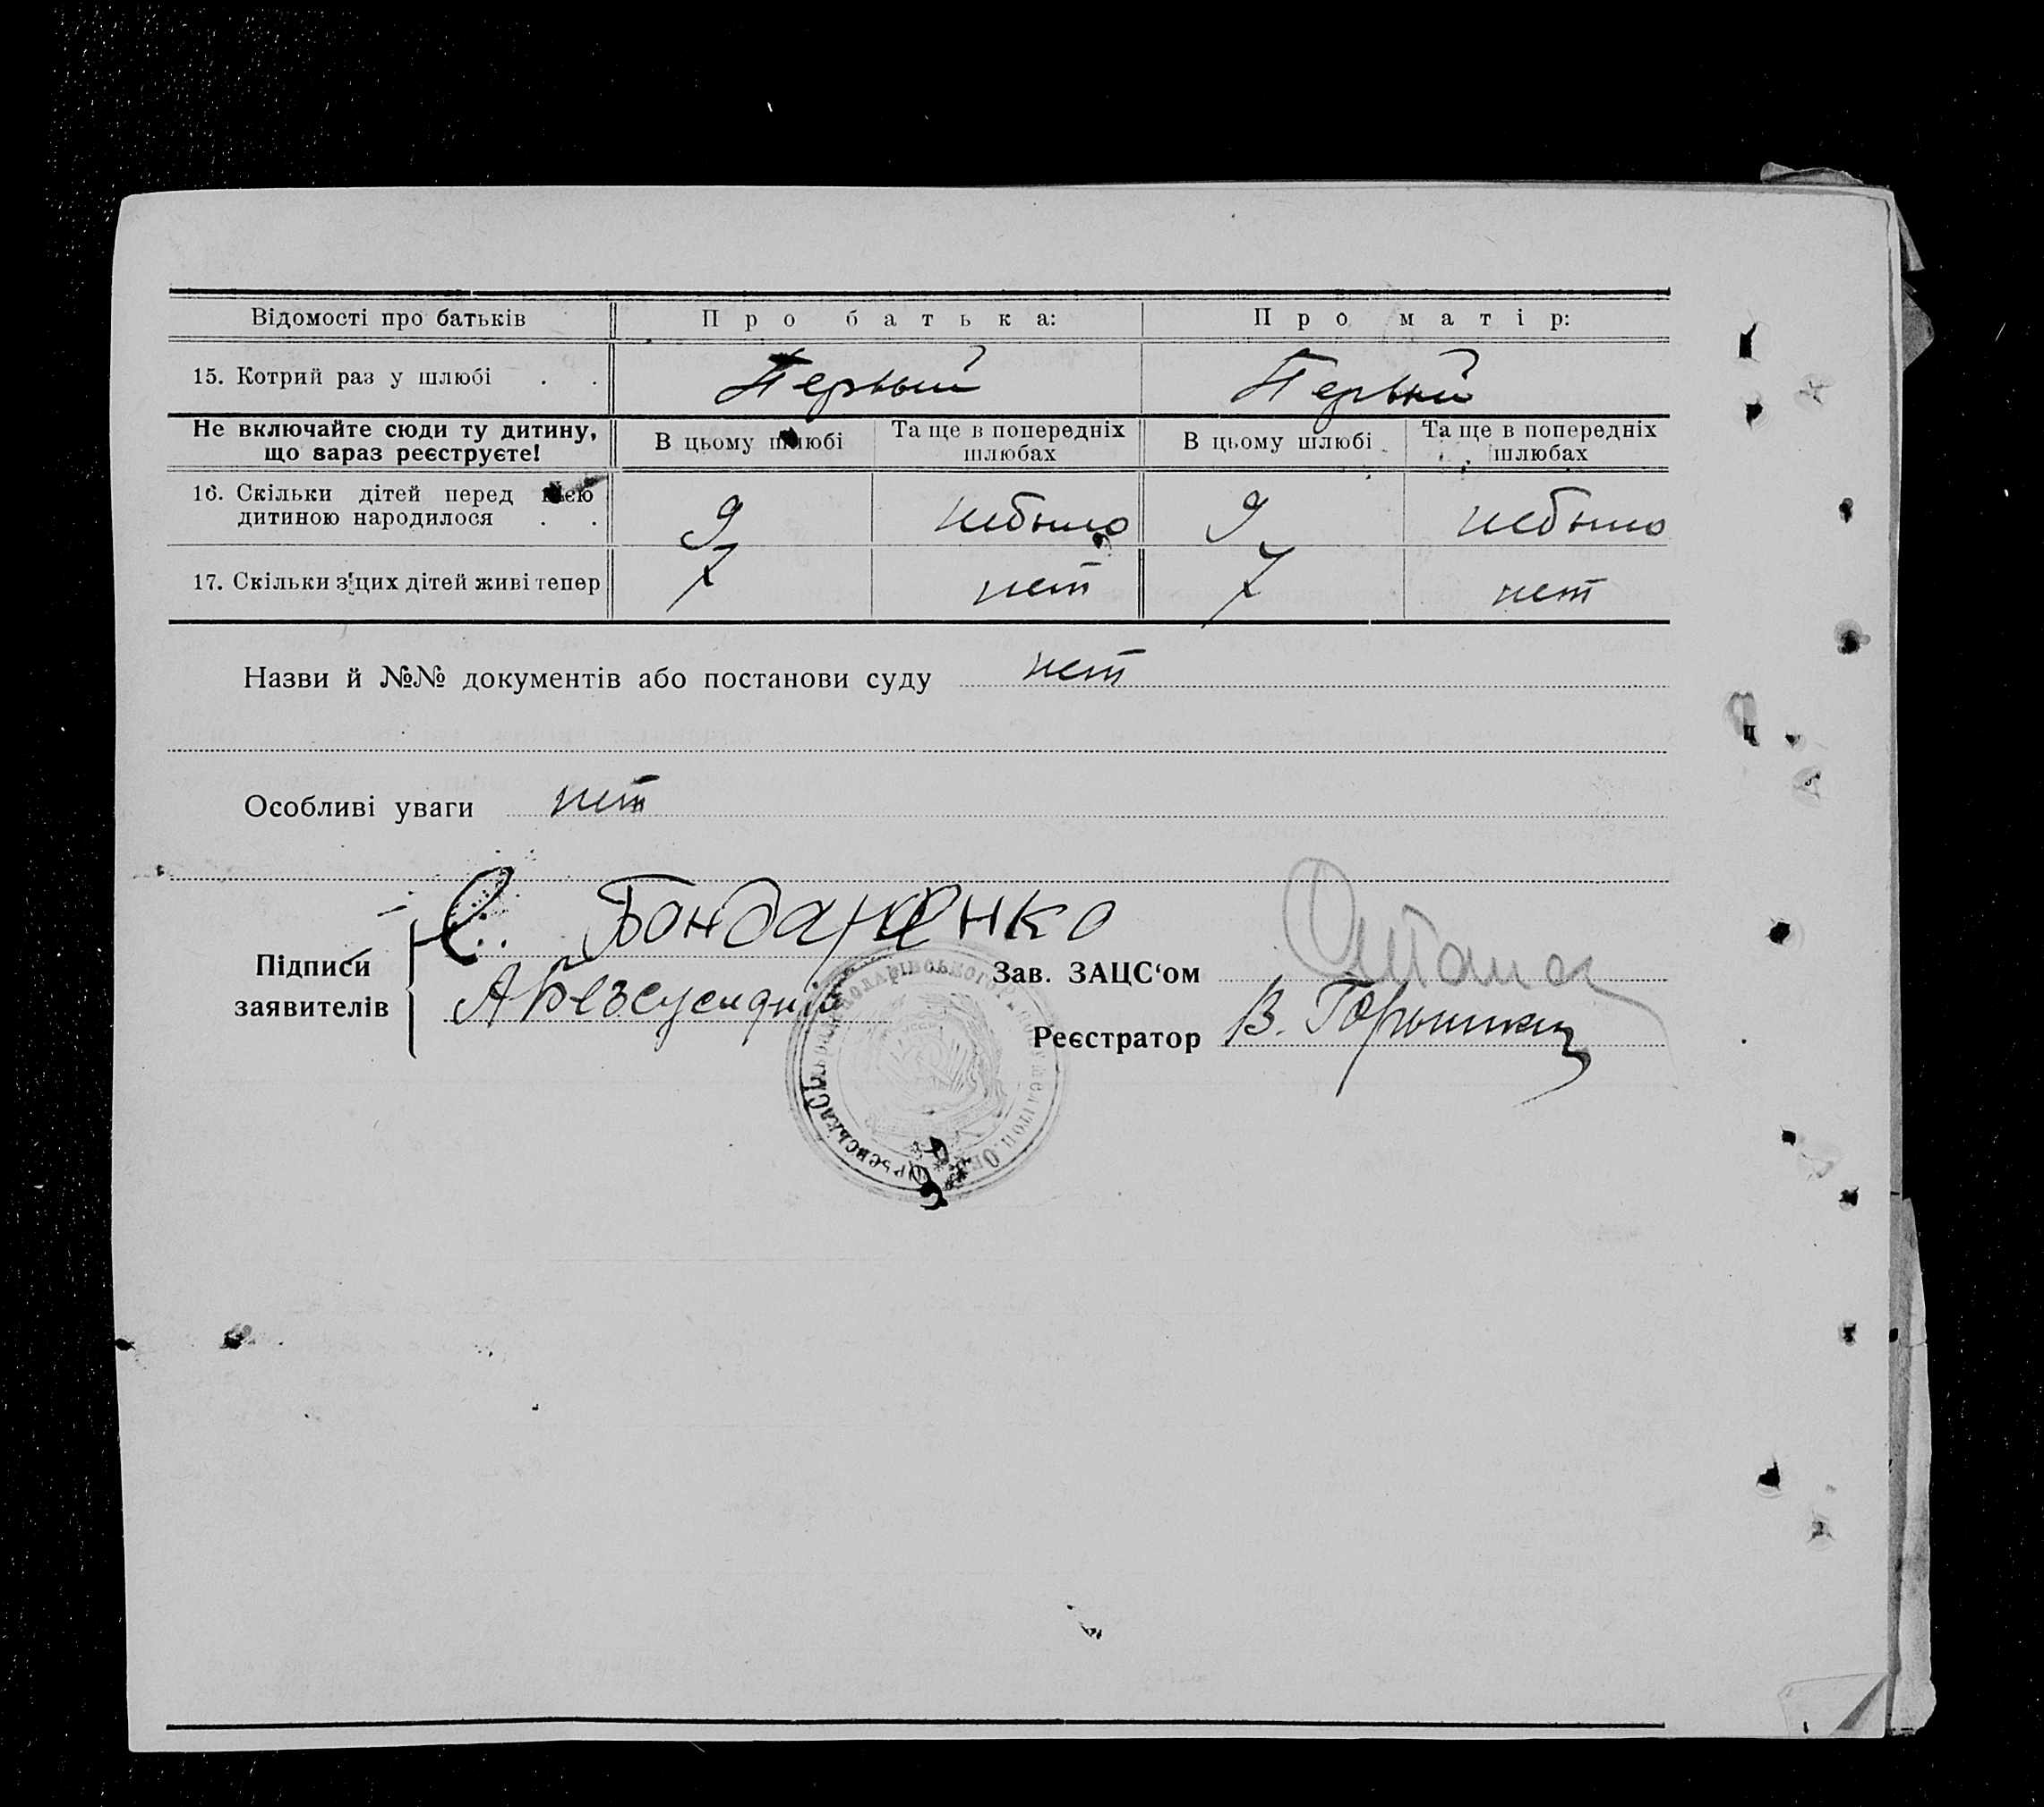 Відомості про батьків Про батька: Про матір:
15. Котрий раз у шлюбі . . Первый Первый
Не включайте сюди ту дитину, що зараз реєструєте! В цьому шлюбі Та ще в попередніх шлюбах В цьому шлюбі Та ще в попередніх шлюбах
16. Скільки дітей перед цією
дитиною народилося . . 9 небыло 9 небыло
17. Скільки з цих дітей живі тепер 7 нет 7 нет
Назви й №№ документів або постанови суду нет
Особливі уваги нет
Підписи заявителів
С. Бондаренко
А Безсу
Зав. ЗАЦС‘ом
Реєстратор В.